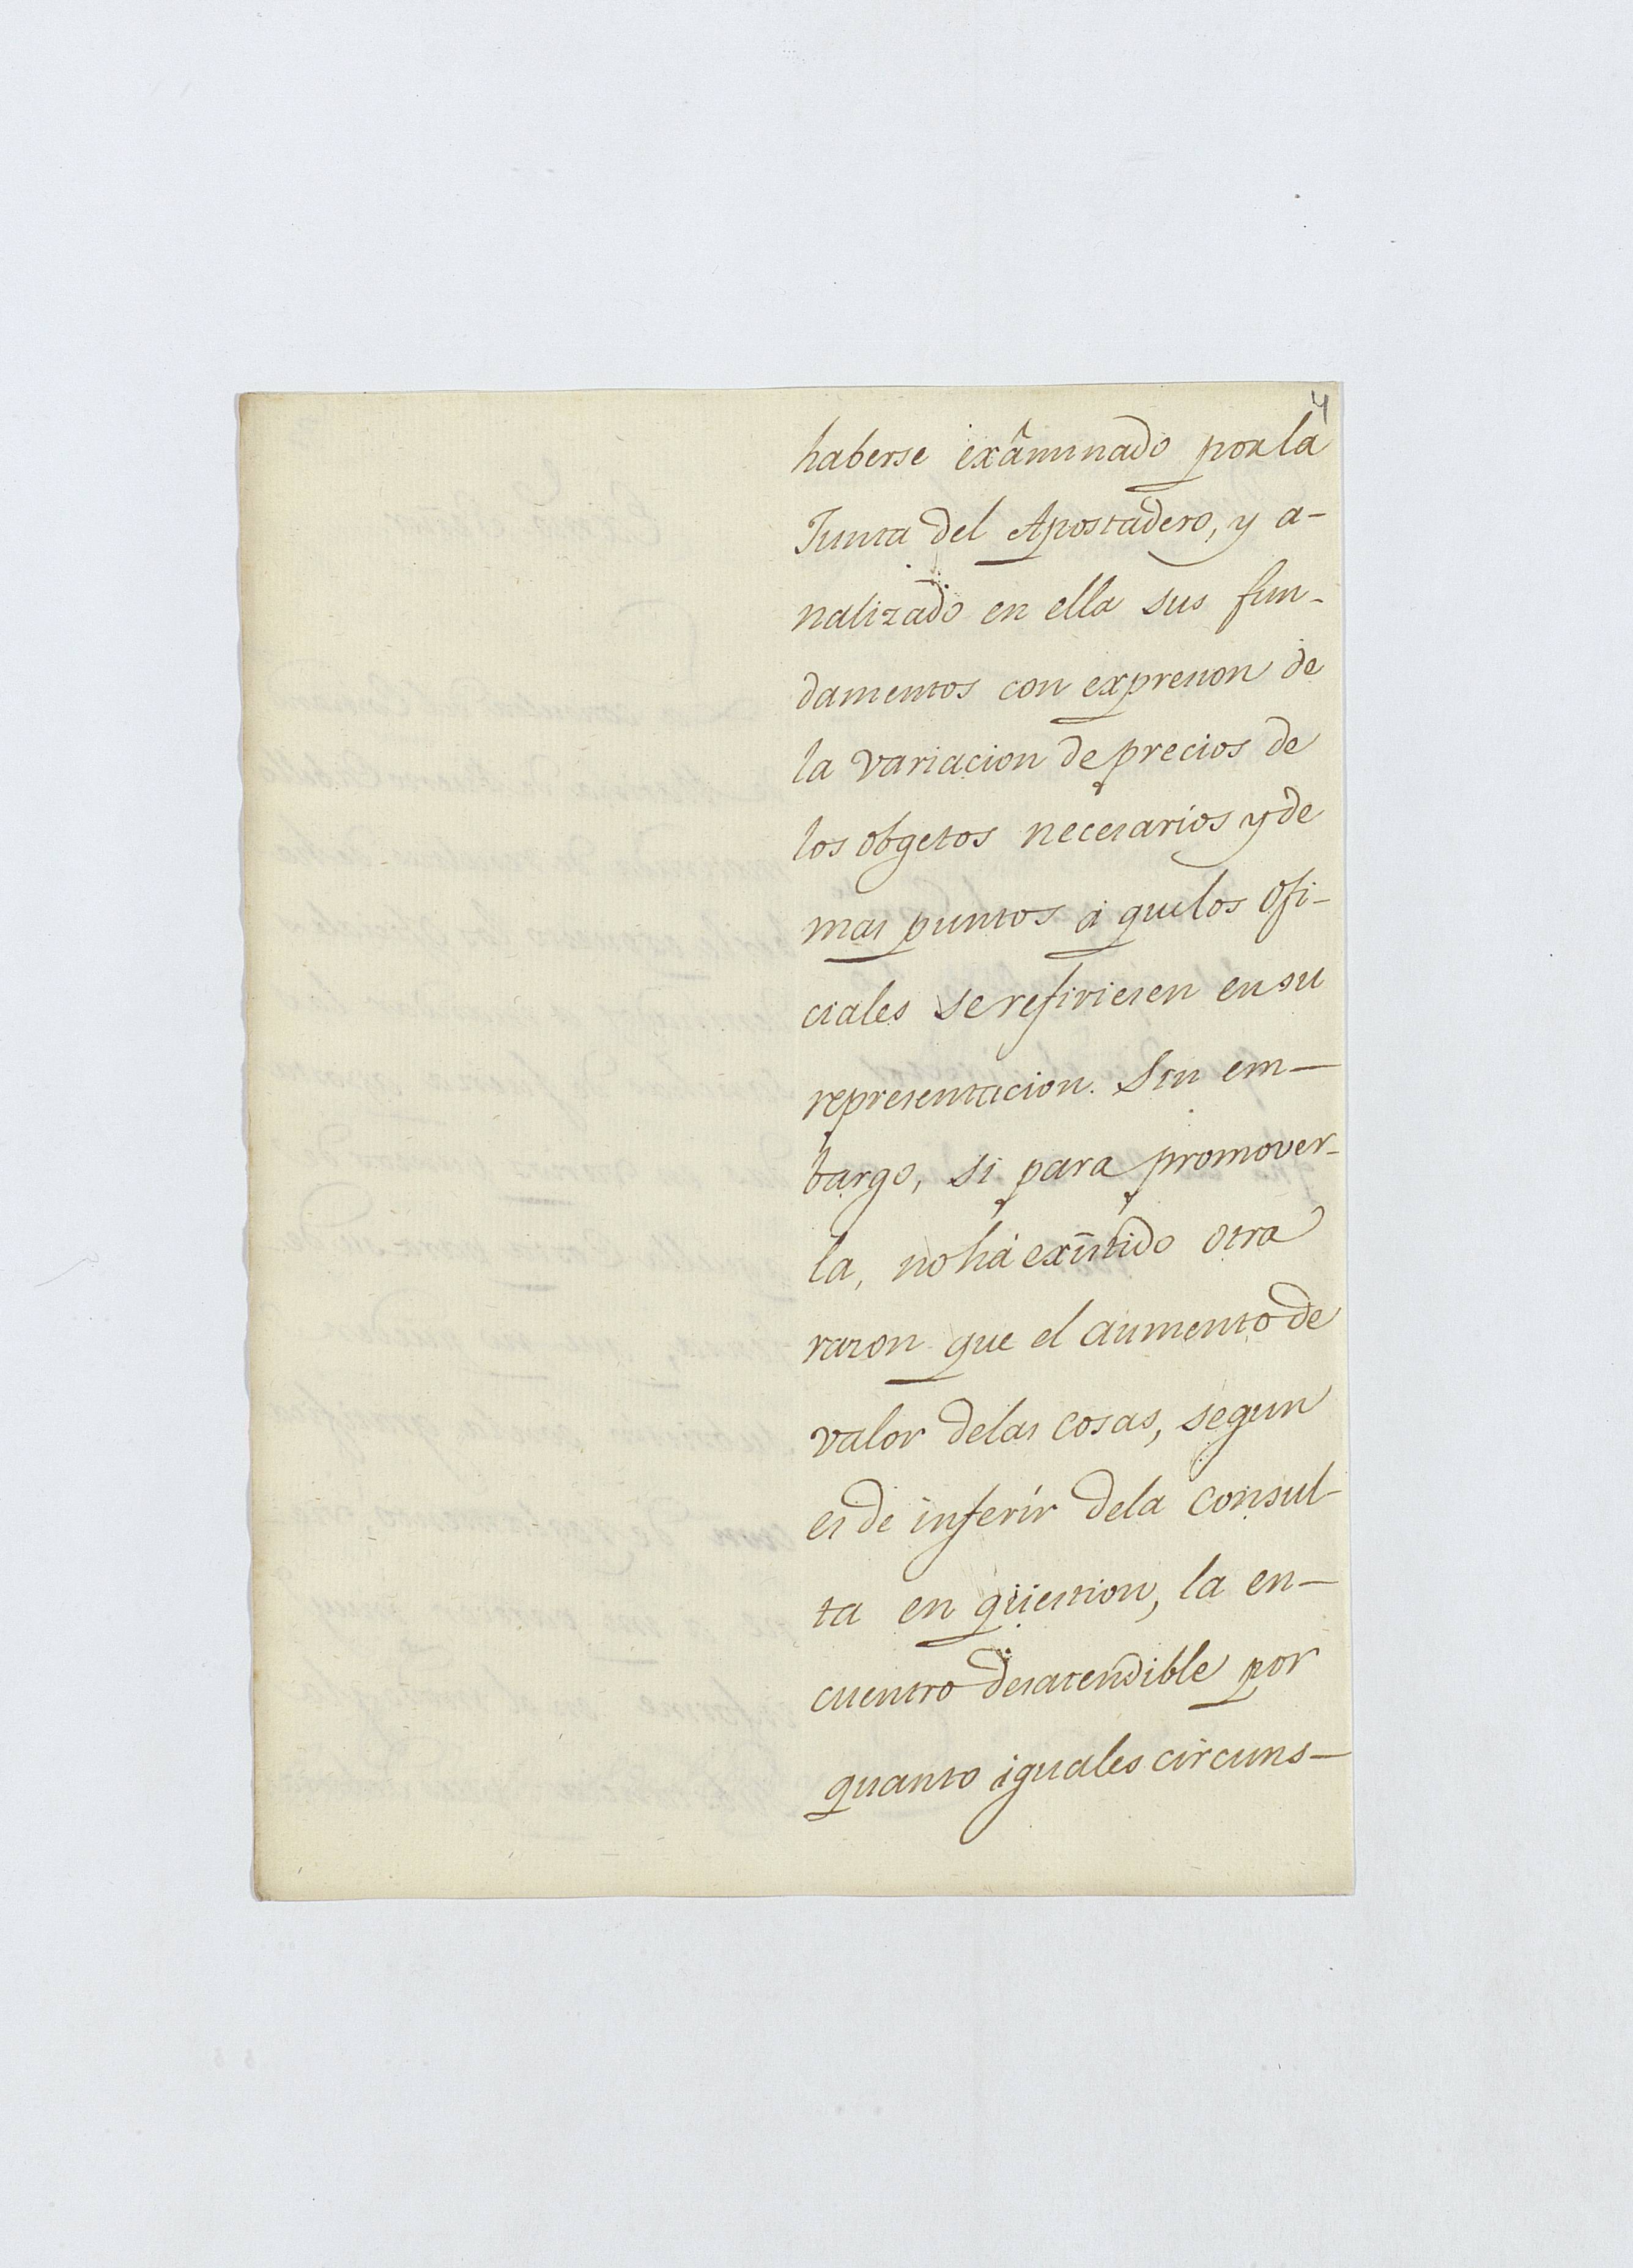 4
haberse exâminado por la
Junta del Apostadero, y a-
nalizado en ella sus fun-
damentos con expresion de
la variacion de precios de
los obgetos necesarios y de
mas puntos á que los Ofi-
ciales se refiriesen en su
representacion. Sin em-
bargo, si para promover-
la, no há exîstido otra
razon que el aumento de
valor de las cosas, segun
es de inferir de la consul-
ta en qüestion, la en-
cuentro desatendible por
quanto iguales circuns-